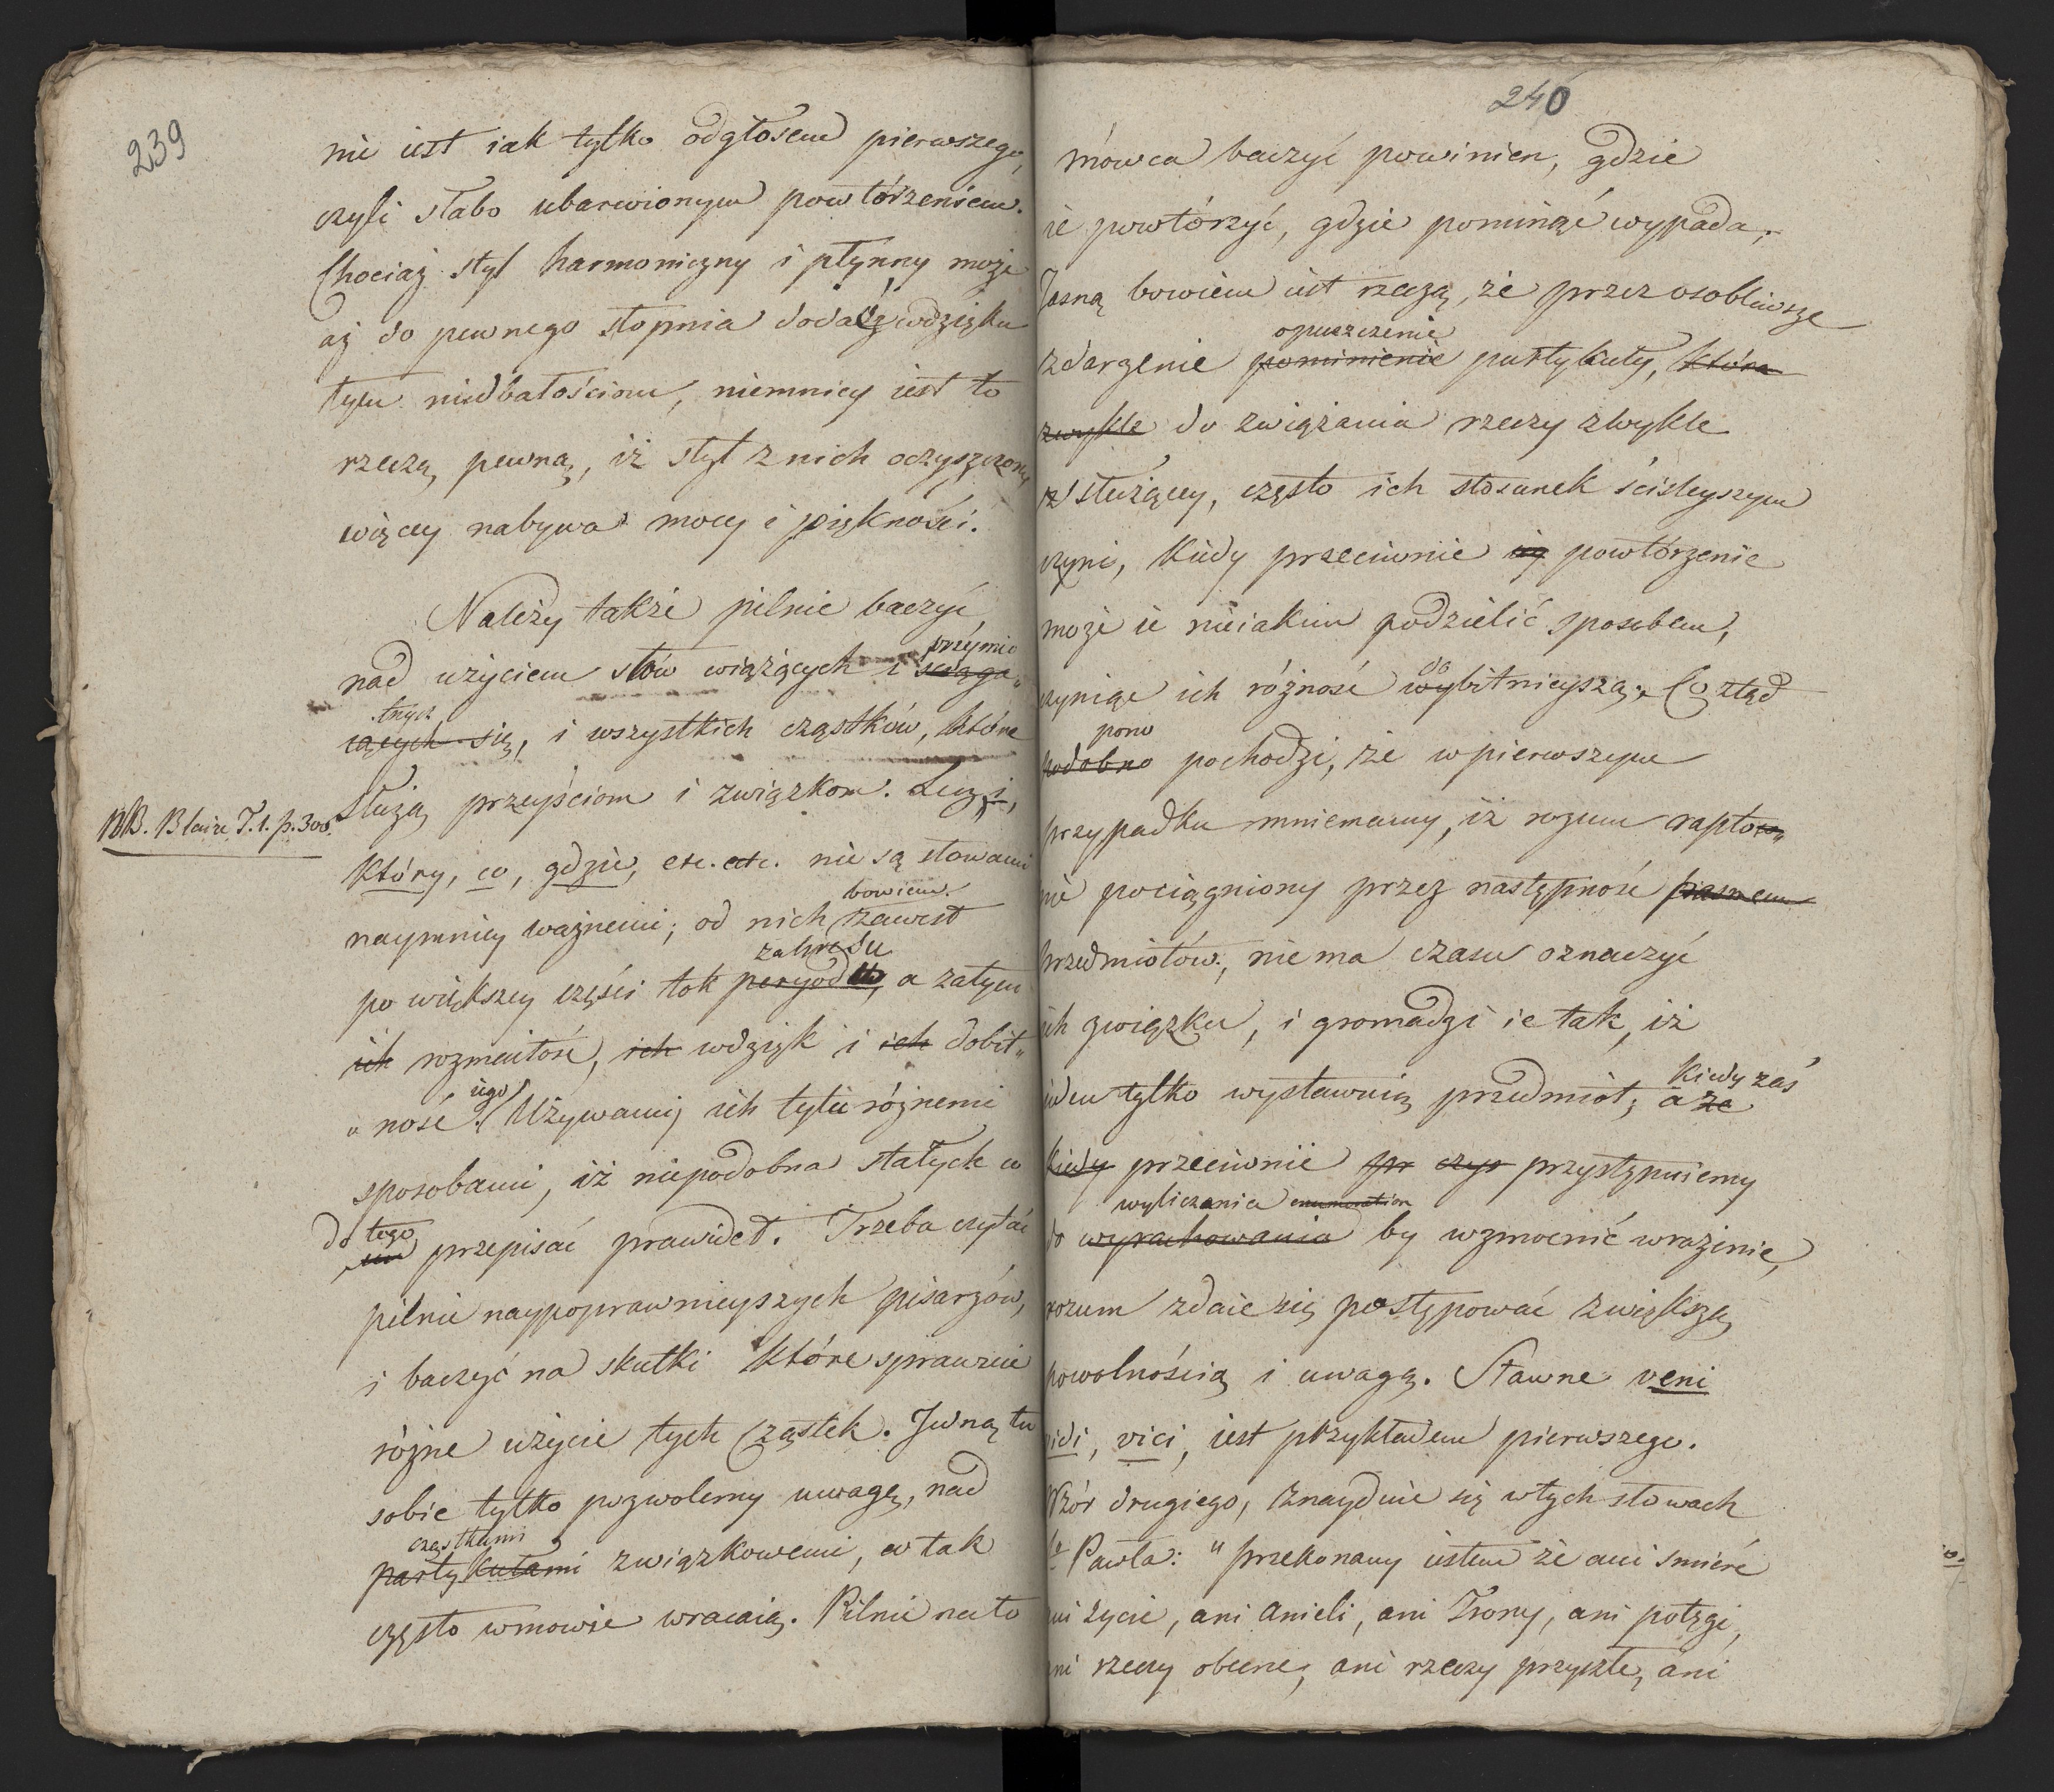 239
nie iest iak tylko odgłosem pierwszego,
czyli słabo ubarwionym powtórzeniem.
Chociaż styl harmoniczny i płynny może
aż do pewnego stopnia dodać wdzięku
tym niedbałościom, niemniey iest to
rzeczą pewną, iż styl z nich oczyszczony
więcey nabywa mocy i piękności.
Należy także pilnie baczyć,
przymio
nad użyciem słów wiążących i ściąga„
tnych
iących się, i wszystkich cząstków, które
służą przeyściom i związkom. Lecz, i,
NB. Blaire T. 1. p. 300.
który, co, gdzie, etc. etc. nie są słowami
bowiem
naymniey ważnemi; od nich zawisł
zakresu
po większey części tok peryodu, a zatym
ich rozmaitość, ich wdzięk i ich dobit„
iego
„ność. Używamy ich tylu różnemi
sposobami, iż niepodobna stałych w
do tego
przepisać prawideł. Trzeba czytać
pilnie naypoprawnieyszych pisarzów,
i baczyć na skutki które sprawuie
różne użycie tych cząstek. Jedną tu
sobie tylko pozwolemy uwagę, nad
cząstkami
partykułami związkowemi, co tak
często w mowie wracaią. Pilnie na to
240
mówca baczyć powinien, gdzie
ie powtórzyć, gdzie pominąć wypada;
Jasną bowiem iest rzeczą, że przez osobliwsze
opuszczenie
zdarzenie pominienie partykuły, która
zwykle do związania rzeczy zwykle
służącey, często ich stosunek ściśleyszym
czyni, kiedy przeciwnie iey powtórzenie
może ie nieiakim podzielić sposobem,
do
czyniąc ich różność wybitnieyszą. Co ztąd
pono
podobno pochodzi, że w pierwszym
przypadku mniemamy, iż rozum raptow
nie pociągniony przez następność pasmem
przedmiotów, nie ma czasu oznaczyć
ich związku, i gromadzi ie tak, iż
kiedy zaś
ieden tylko wystawuią przedmiot; a że
kiedy przeciwnie pr czys przystępuiemy
wyliczania enumeration
do wyrachowania by wzmocnić wrażenie,
rozum zdaie się postępować z większą
powolnością i uwagą. Sławne veni
vidi, vici, iest przykładem pierwszego.
Wzór drugiego, znayduie się w tych słowach
Pawła: "przekonany iestem że ani smierć
ani życie, ani Anieli, ani Trony, ani potęgi,
ani rzeczy obecne, ani rzeczy przyszłe, ani